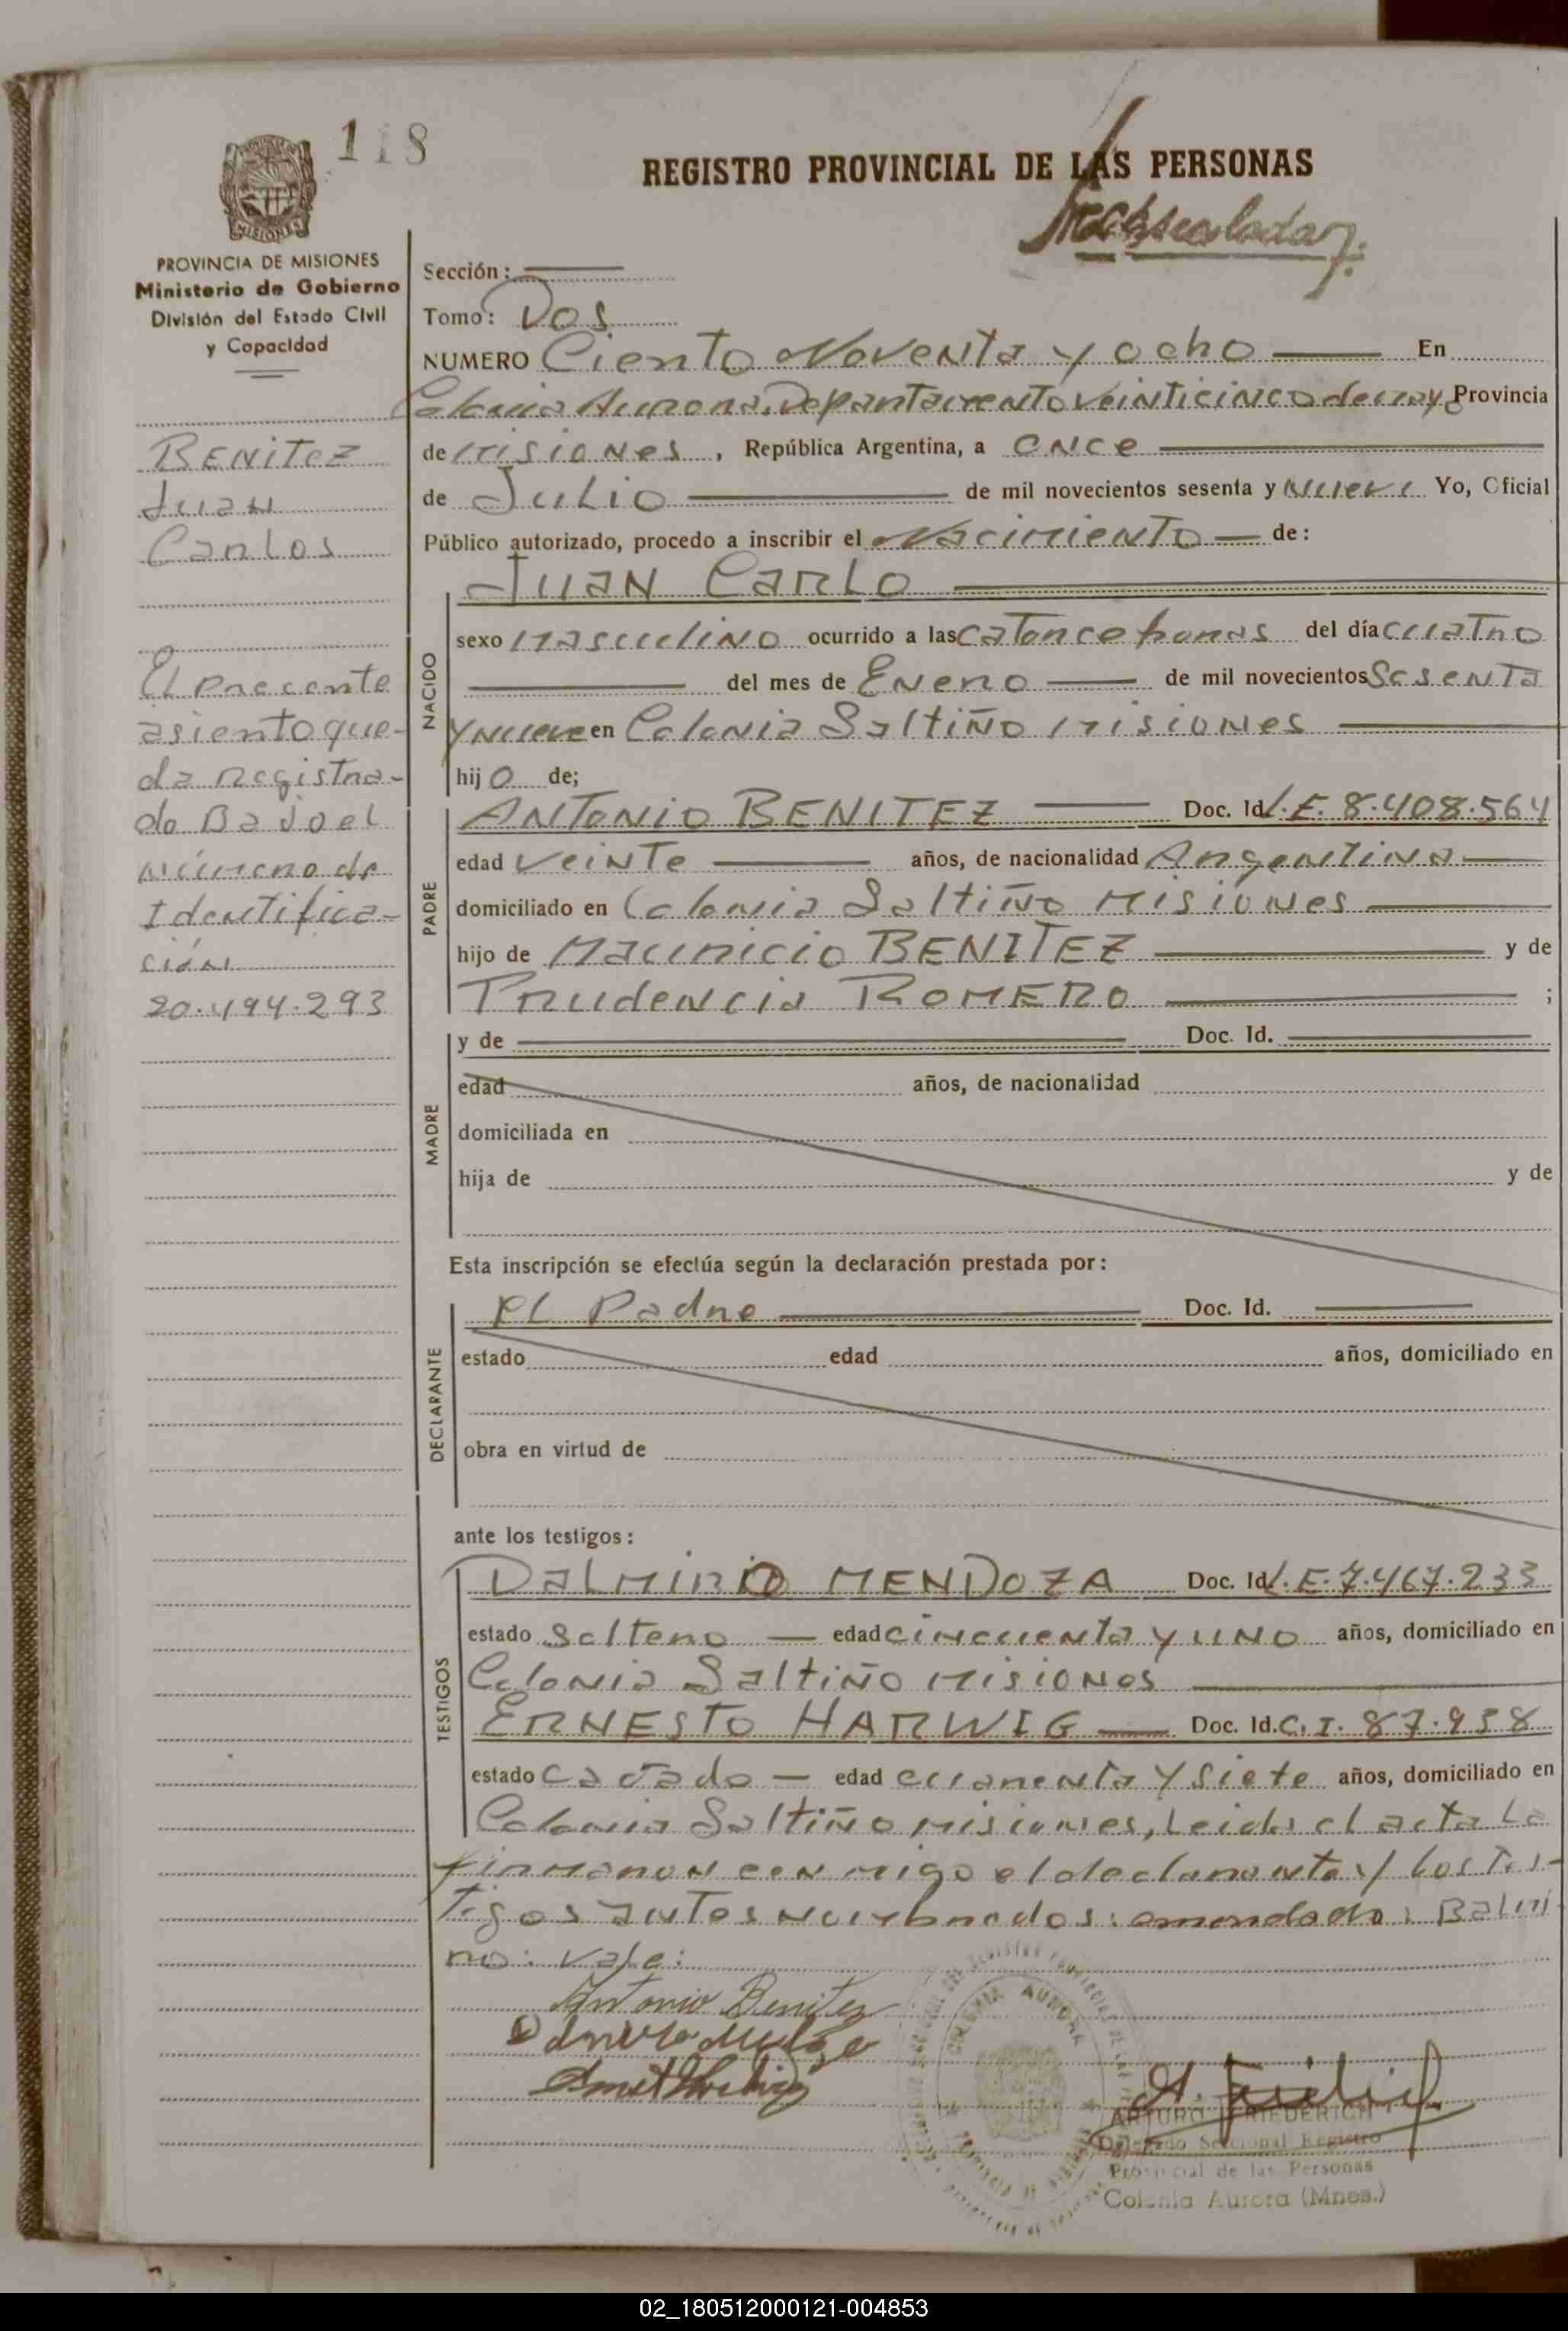 118
REGISTRO PROVINCIAL DE LAS PERSONAS
MISIONES
PROVINCIA DE MISIONES
Ministerio de Gobierno
División del Estado Civil
y Capacidad
Sección:
Tomo: Dos
NUMERO Ciento Noventa y ocho En
Colonia Aurora, Departamento Veinticinco de mayo Provincia
de Misiones, República Argentina, a once
de Julio de mil novecientos sesenta y nueve Yo, Oficial
Público autorizado, procedo a inscribir el Nacimiento de:
BENITEZ
Juan
Carlos
El presente
asiento que-
da registra-
do Bajo el
número de
Identifica-
ción
20.494.293
NACIDO
Juan Carlo
sexo masculino ocurrido a las catorce horas del día cuatro
del mes de Enero de mil novecientos Sesenta
y nueve en Colonia Saltiño Misiones
hijo de;
PADRE
Antonio BENITEZ Doc. Id L.E. 8.408.564
edad veinte años, de nacionalidad Argentina
domiciliado en Colonia Saltiño Misiones
hijo de Mauricio BENITEZ y de
Prudencia ROMERO ;
MADRE
y de Doc. Id.
edad años, de nacionalidad
domiciliada en
hija de y de
Esta inscripción se efectúa según la declaración prestada por:
DECLARANTE
el Padre Doc. Id.
estado edad años, domiciliado en
obra en virtud de
ante los testigos:
TESTIGOS
Dalmiro MENDOZA Doc. Id L.E. 7.467.233
estado Soltero edad cincuenta y uno años, domiciliado en
Colonia Saltiño Misiones
ERNESTO HARWIG Doc. Id. C.I. 87.938
estado casado edad cuarenta y siete años, domiciliado en
Colonia Saltiño Misiones, Leida el acta La
firmaron conmigo el declarante y los Tes-
tigos antes nombrados: enmendado: Balmi
ro: vale:
Antonio Benitez
ARTURO FRIEDERICH
Delegado Seccional Registro
Provincial de las Personas
Colonia Aurora (Mnes.)
02_180512000121-004853